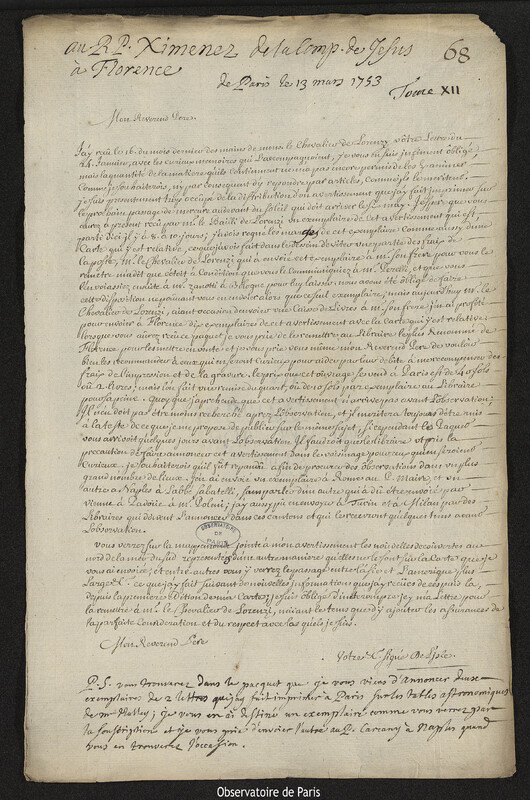 au R P. Ximenez de la Comp. de Jesus 68
à Florence
de Paris le 13 mars 1753
Tome XII
Mon Reverend Pere
J'ay recû le 16 du mois dernier des mains de monsr. le Chevalier de Lorenzi vôtre Lettre du
24 Janvier, avec les curieux memoires qui l'accompagnoient, je vous en suis infiniment obligé,
mais la quantité de la matiere qu'ils contiennent ne m'a pas encore permis de les examiner
Comme je souhaiterois, n'y par consequent d'y repondre par articles, comme ils le meritent,
je suis presentement trop occupé de la distribution d'un avertissement que j'ay fait imprimer sur
le prochain passage de mercure au devant du soleil qui doit arriver le 6 may. J'espere que vous
aurez à present recû par mr. le Bailli de Lorenzi un exemplaire de cet avertissement qui est
parti d'ici il y a 8 à 10 jours;
Carte qui y est relative, ce que j'avois fait dans le dessein d'éviter une partie des frais de
la poste, mr. le Chevalier de Lorenzi qui a envoié cet exemplaire à mr. son frere pour vous le
remettre m'a dit que c'étoit à condition que vous le communiquiez à mr. Perelli, et que vous
l'envoiassiez ensuite à mr. Zanotti à Bologne pour luy laisser nous avons été obligé de faire
cette disposition ne pouvant vous en envoier alors que ce seul exemplaire; mais aujourd'huy mr. le
Chevalier de Lorenzi, aiant occasion d'envoier une Caisse de Livres à mr. son frere, j'en ai profité
pour envoier à Florence dix exemplaires de cet avertissement avec la Carte qui y est relative.
lorsque vous aurez recû ce paquet je vous prie de les remettre au Libraire le plus renommé de
Florence, pour les mettre en vente et je vous prie vous même mon Reverend Pere de vouloir
bien les recommander à ceux qui en seront curieux pour aider par leur debit à me recompenser des
frais de l'impression et de la gravure. le prix que cet ouvrage se vend à Paris est de 40 sols
ou 2 livres; mais l'on fait une remise du quart, ou de 10 sols par exemplaire au Libraire
pour sa peine. Quoy que j'aprehende que cet avertissement n'arrive pas avant l'observation;
il n'en doit pas être moins recherché aprez l'observation, et il meritera toujours d'être mis
à la teste de ce que je me propose de publier sur le même sujet; si cependant le Paquet
vous arrivoit quelques jours avant l'observation il faudroit que le libraire eut pris la
precaution de faire annoncer cet avertissement dans le voisinage pour ceux qui en seroient
Curieux. je souhaiterois qu'il fût repandu afin de procurer des observations dans un plus
grand nombre de lieux. J'en ai envoié un exemplaire à Rome au P. Maire, et un
autre à Naples à l'abbé Sabatelli, sans parler d'un autre qui a dû être envoié par
vienne à Padoue à mr. Poleni; j'ay aussi pû en envoyer à Turin et à Milan par des
Libraires qui doivent l'annoncer dans ces cantons et qui les recevront quelques tems avant
l'observation.
OBSERVATOIRE DE PARIS
Vous verrez sur la mappemonde jointe à mon avertissement les nouvelles decouvertes au
nord de la mer du sud representées d'une autre maniere qu'elles ne le sont sur la Carte que je
vous ai envoiée; et entre autres vous y verrez le passage entre l'asie et l'amerique plus
Large &c. ce que j'ay fait suivant de nouvelles informations que j'ay recües de ces païs là,
depuis la premiere edition de ma Carte; je suis obligé d'interrompre icy ma Lettre pour
la remettre à mr. le Chevalier de Lorenzi, n'aiant le tems que d'y ajouter les assurances de
la parfaite consideration et du respect avec lesquels je suis.
Mon Reverend Pere
Votre &c. signé De l'Isle.
P.S. vous trouverez dans le pacquet que je vous viens d'annoncer deux
exemplaires de 2 lettres que j'ay fait imprimer à Paris sur les tables astronomiques
de mr Halley; je vous en ai destiné un exemplaire comme vous verrez par
la souscription et je vous prie d'envoier l'autre au P. Carcani à Naples quand
vous en trouverez l'occasion.
Observatoire de Paris